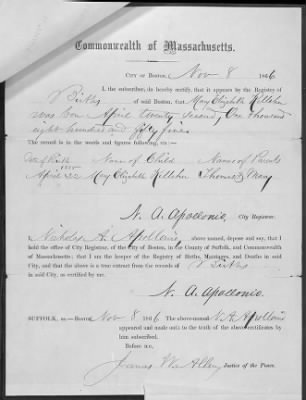 Commonwealth of Massachusetts.
CITY OF BOSTON, Nov 8 1866
I, the subscriber, do hereby certify, that it appears by the Registry of
Births of said Boston, that Mary Elizabeth Kelleher
was born April twenty second, One thousand
eight hundred and fifty five
The record is in the words and figures following, viz:—
Date of Birth Name of Child Names of Parents
1855
April 22 Mary Elizabeth Kelleher Thomas & Mary
N. A. Apollonio, City Registrar.
I, Nicholas A. Apollonio, above named, depose and say, that I
hold the office of City Registrar, of the City of Boston, in the County of Suffolk, and Commonwealth
of Massachusetts; that I am the keeper of the Registry of Births, Marriages, and Deaths in said
City, and that the above is a true extract from the records of Births
in said City, as certified by me.
N. A. Apollonio.
SUFFOLK, ss.—BOSTON, Nov 8 1866 The above-named N. A. Apollonio
appeared and made oath to the truth of the above certificates by
him subscribed.
Before me,
Justice of the Peace.